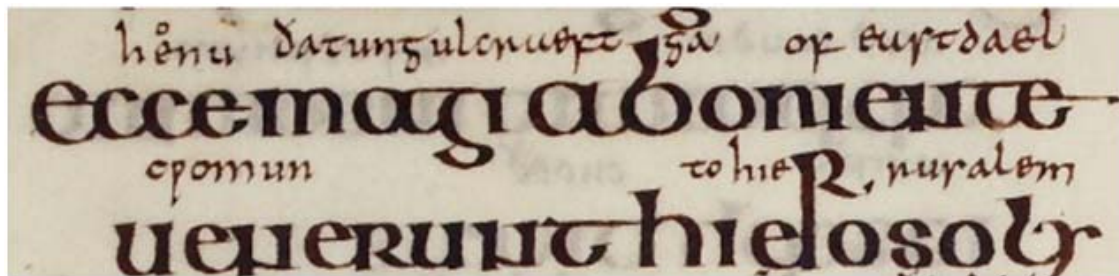 heonu ða tungulcraeft ga of eustdael
ecce magi ab oriente
cƿomun to hie . rusalem
uenerunt hierosoly